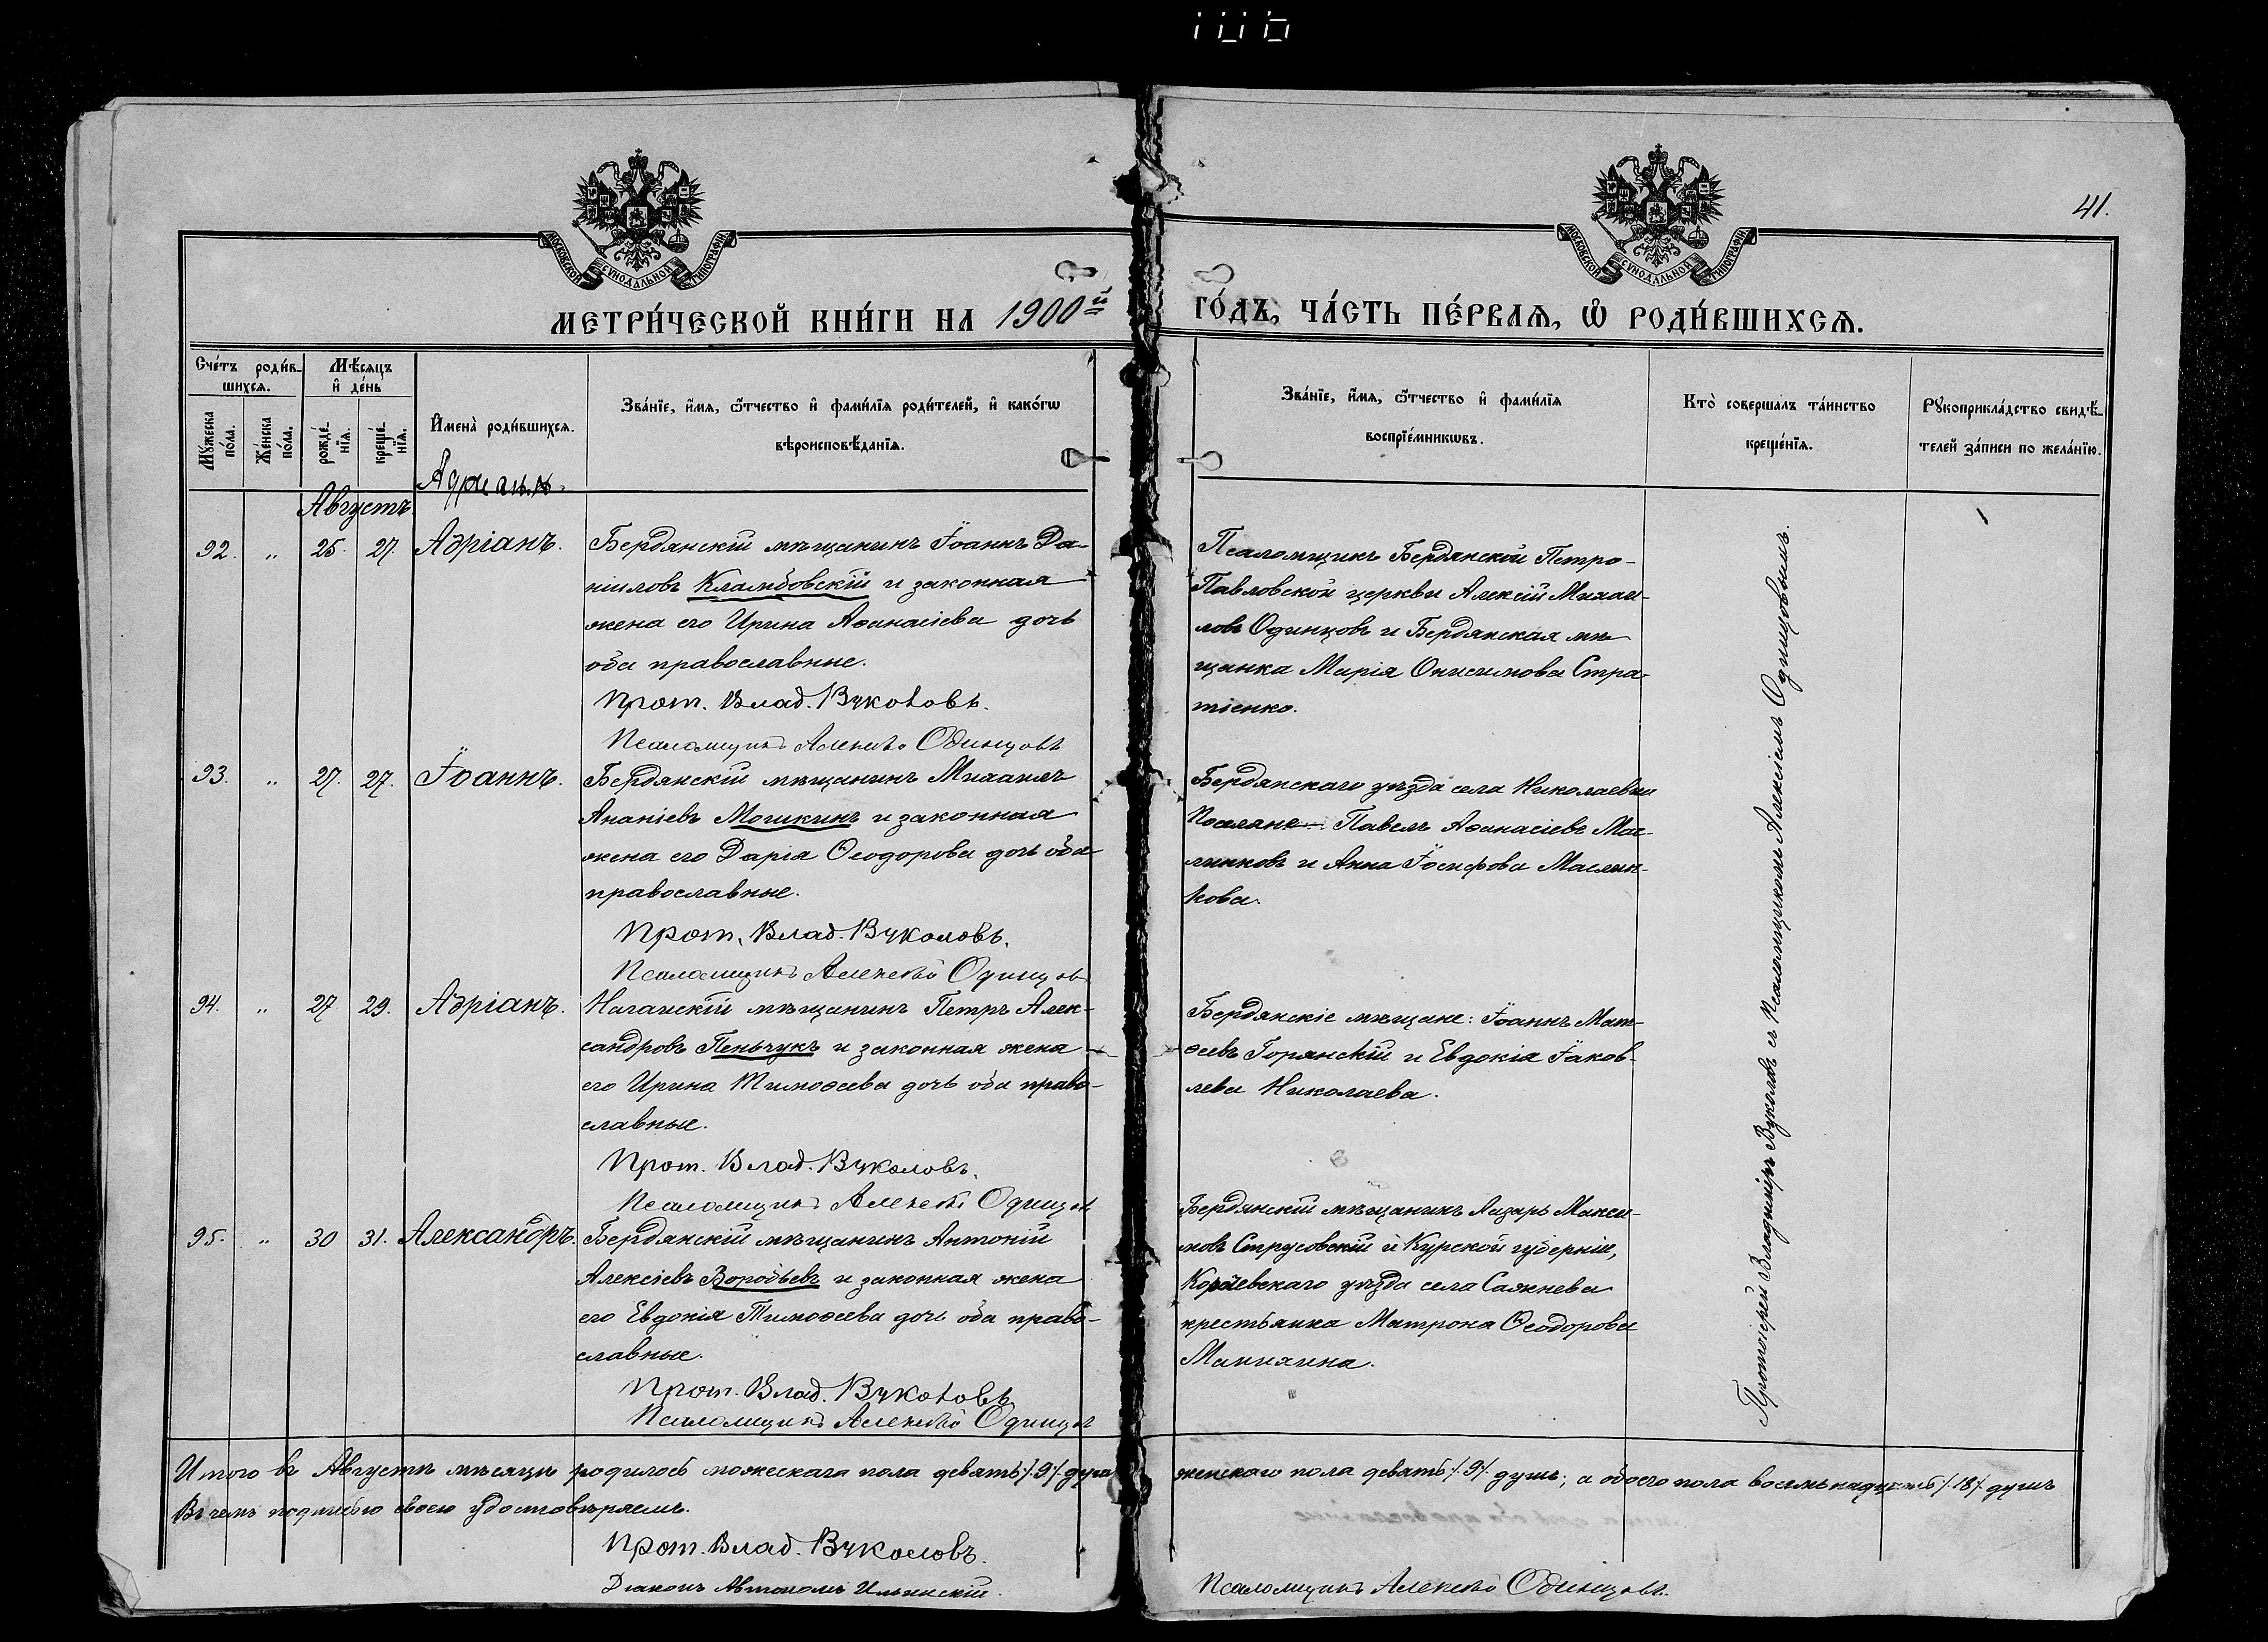 41.
МОСКОВСКОЙ СѴНОДАЛЬНОЙ ТИПОГРАФІИ
МОСКОВСКОЙ СѴНОДАЛЬНОЙ ТИПОГРАФІИ
МЕТРИ́ЧЕСКОЙ КНИ́ГИ НА 1900й ГО́ДЪ, ЧА́СТЬ ПЕ́РВАѦ, Ѡ РОДИ́ВШИХСѦ.
Счетъ родив-
шихсѧ.
Мѣсѧцъ
и день
Мꙋжеска
пола.
Женска
пола.
рожде-
нїѧ.
креще-
нїѧ.
Имена родившихсѧ.
Званїе, имѧ, ѿчество и фамилїѧ родителей, и какогѡ
вѣроисповѣданїѧ.
Званїе, имѧ, ѿчество и фамилїѧ
воспрїемникѡвъ.
Кто совершалъ таинство
крещенїѧ.
Рꙋкоприкладство свидѣ-
телей записи по желанїю.
Адріанъ
Августъ.
92. „ 25. 27. Адріанъ.
Бердянскій мѣщанинъ Іоаннъ Да-
ніиловъ Кламбовскій и законная
жена его Ирина Аѳанасіева дочь
оба православные.
Прот. Влад. Вуколовъ.
Псаломщикъ Алексѣй Одинцовъ
Псаломщикъ Бердянской Петро-
Павловской церкви Алексій Михаи-
ловъ Одинцовъ и Бердянская мѣ-
щанка Марія Онисимова Стра-
тіенко.
93. „ 27. 27. Іоаннъ.
Бердянскій мѣщанинъ Михаилъ
Ананіевъ Мошкинъ и законная
жена его Дарія Ѳеодорова дочь оба
православные.
Прот. Влад. Вуколовъ.
Псаломщикъ Алексѣй Одинцов
Бердянскаго уѣзда села Николаевки
Поселяне Павелъ Аѳанасіевъ Мас-
лянковъ и Анна Іосифова Маслян-
кова.
94. „ 27 29. Адріанъ.
Ногайскій мѣщанинъ Петръ Алек-
сандровъ Пеньчукъ и законная жена
его Ирина Тимоѳеева дочь оба право-
славные.
Прот. Влад. Вуколовъ.
Псаломщикъ Алексѣй Одинцов
Бердянскіе мѣщане: Іоаннъ Мат-
ѳеевъ Горянскій и Евдокія Іаков-
лева Николаева.
95. „ 30 31. Александръ.
Бердянскій мѣщанинъ Антоній
Алексіевъ Воробьевъ и законная жена
его Евдокія Тимоѳеева дочь оба право-
славные.
Прот. Влад. Вуколовъ
Псаломщикъ Алексѣй Одинцов
Бердянскій мѣщанинъ Лазарь Макси-
мовъ Струсовскій и Курской губерніи,
уѣзда села Сажнева
крестьянка Матрона Ѳеодорова
Манихина.
Протоіерей Владиміръ Вуколовъ съ Псаломщикомъ Алексіемъ Одинцовымъ.
Итого въ Августѣ мѣсяцѣ родилось можескаго пола девять /.9/. душъ женскаго пола девять /.9/. душъ; а обоего пола восемьнадцать /.18/. душъ
Въ чемъ подписью своею удостовѣряемъ.
Прот. Влад. Вуколовъ.
Діаконъ Автономъ Ильинскій.
Псаломщикъ Алексѣй Одинцовъ.